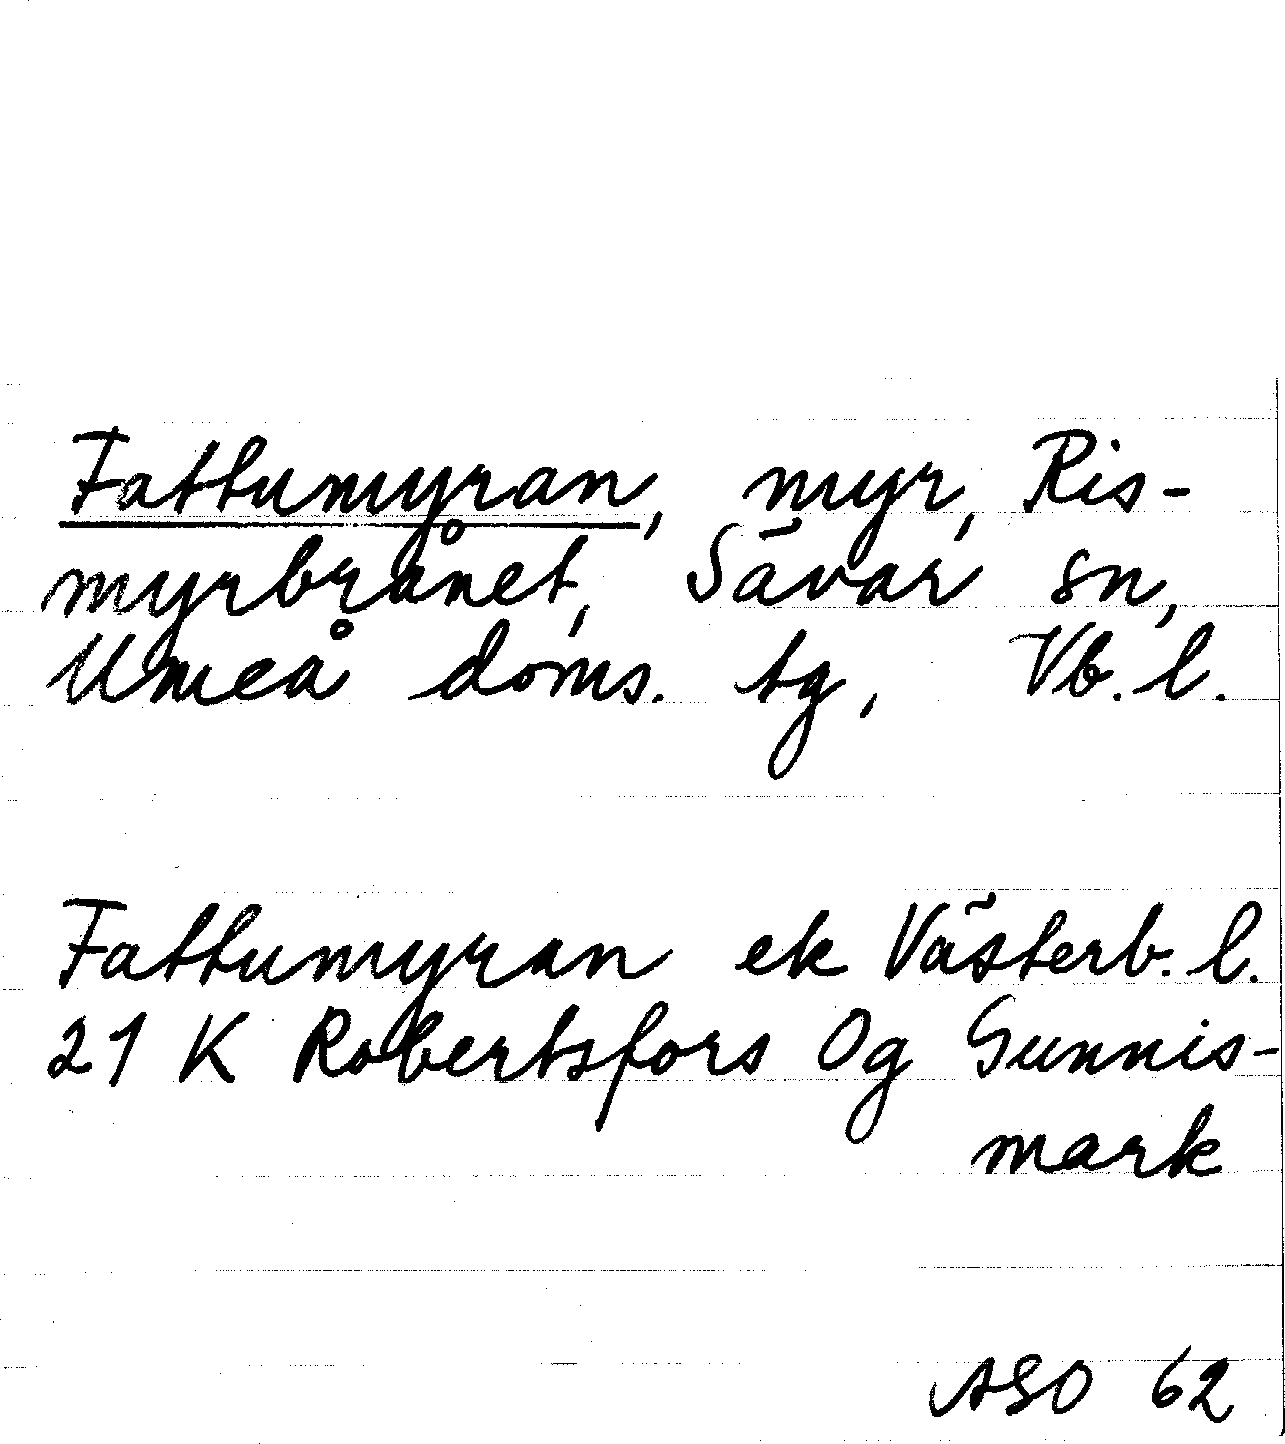 Fattumyran, myr, Ris-
myrbrånet, Sävar sn,
Umeå doms. tg, Vb. l.
Fattumyran ek Västerb. l.
21 K Robertsfors Og Gunnis-
mark
ASO 62